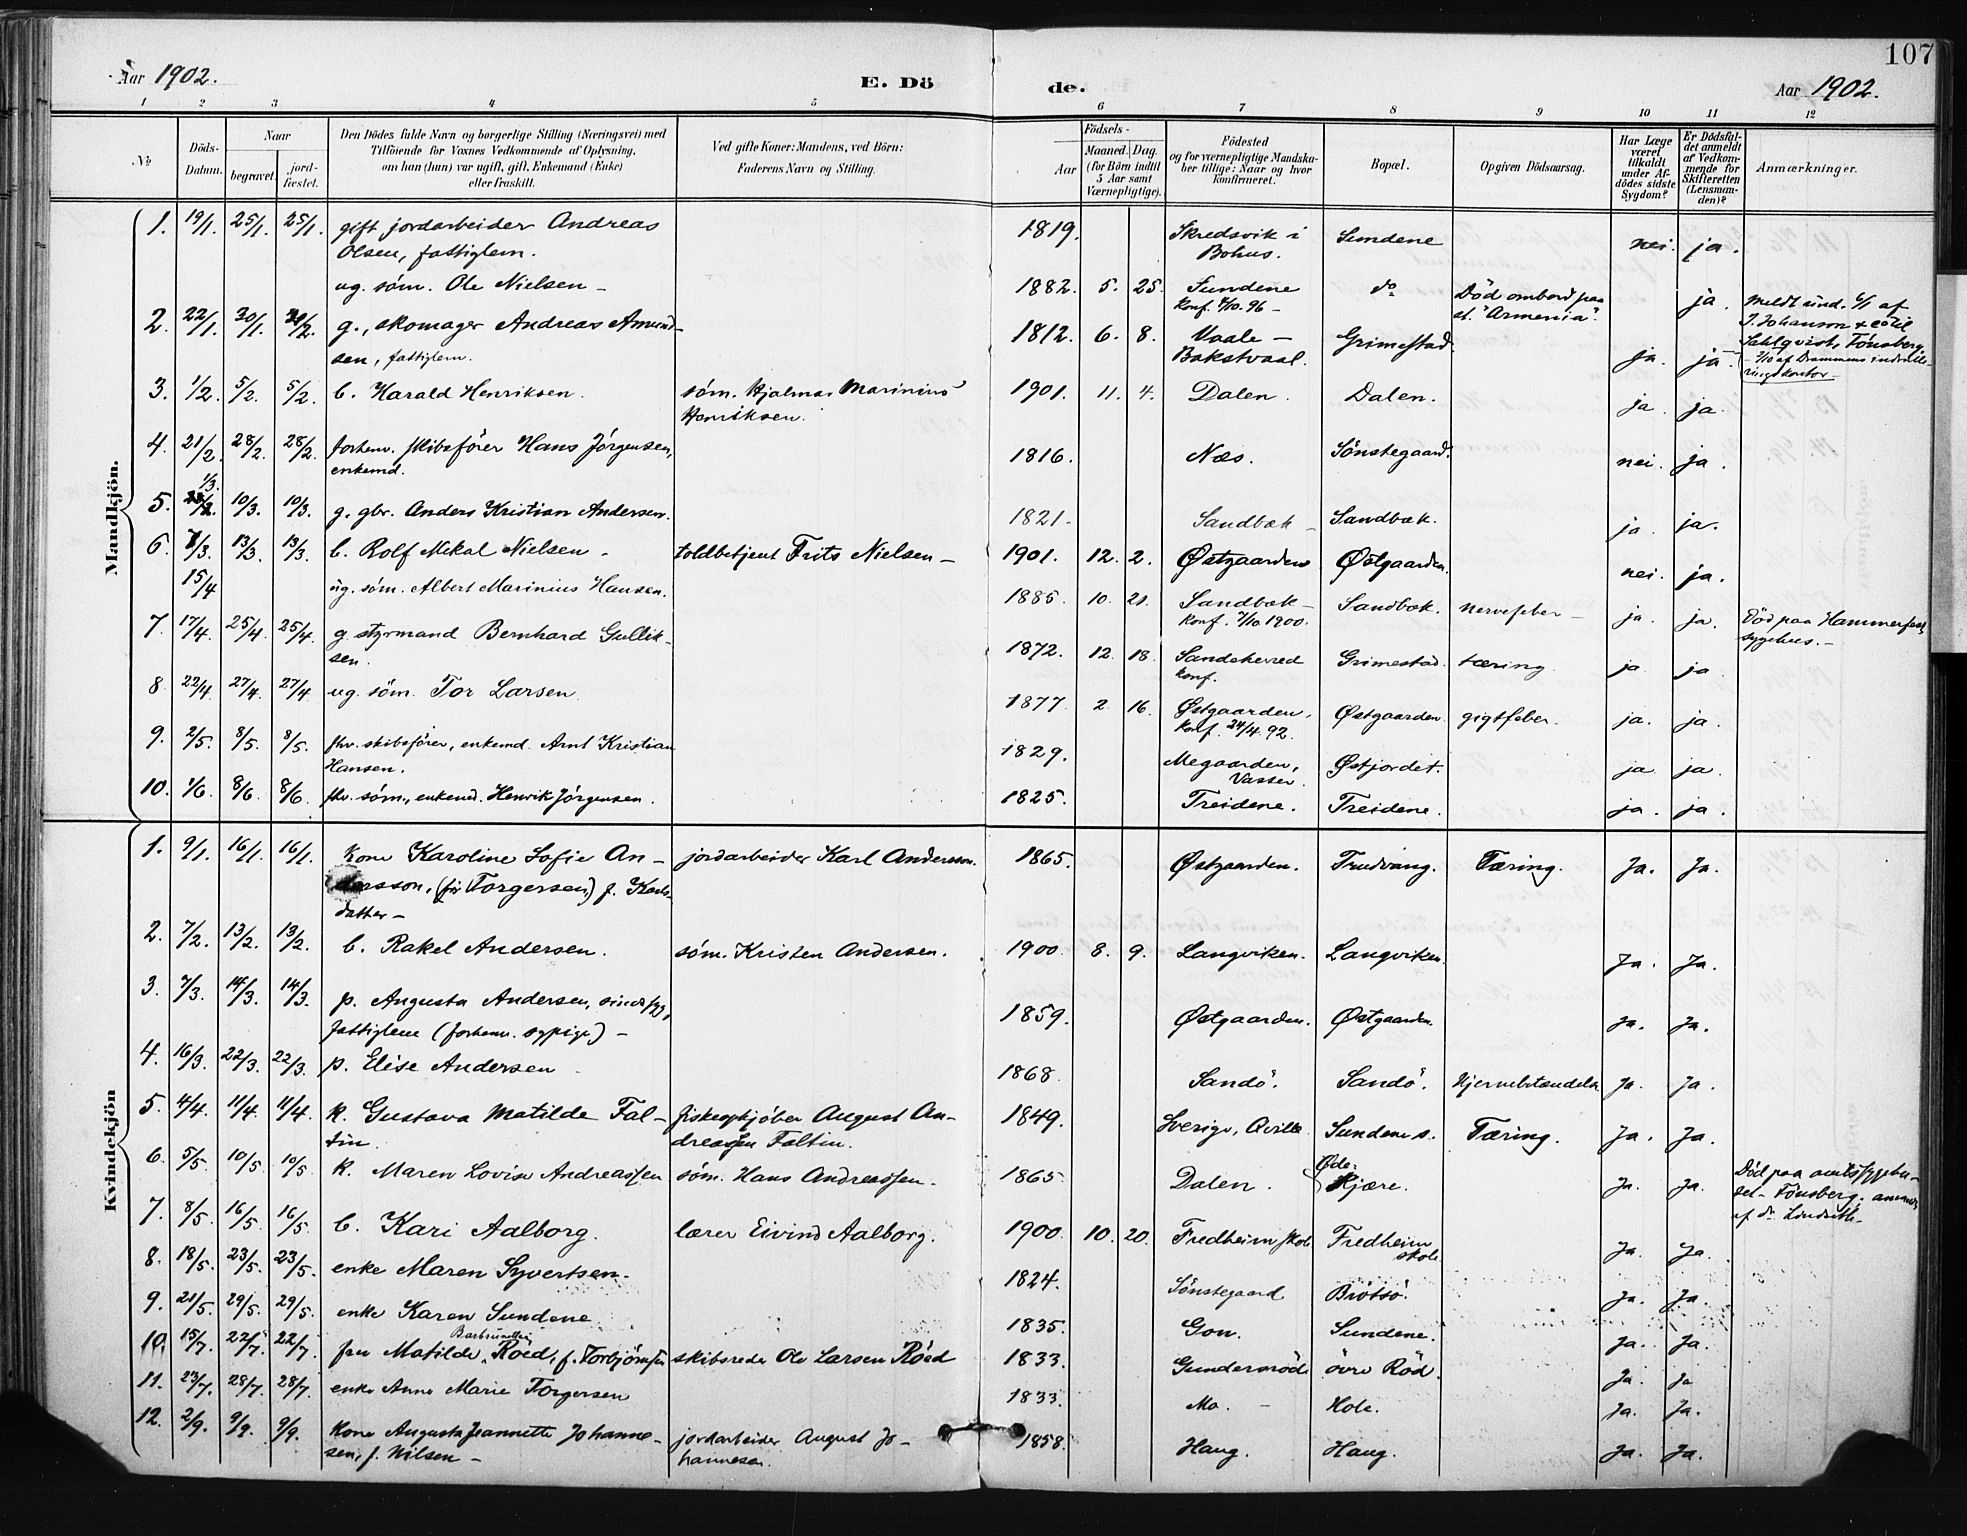 107
Aar 1902. E. Dö de. Aar 1902.
1 2 3 4 5 6 7 8 9 10 11 12
No
Döds-Datum.
Naar
begravet.
jord-fæstet.
Den Dödes fulde Navn og borgerlige Stilling (Næringsvei) med
Tilföiende for Voxnes Vedkommende af Oplysning,
om han (hun) var ugift, gift, Enkemand (Enke)
eller fraskilt.
Ved gifte Koner: Mandens, ved Börn:
Faderens Navn og Stilling.
Födsels-
Aar
Maaned. Dag.
(for Börn indtil
5 Aar samt
Værnepligtige).
Födested
og for værnepligtige Mandska-
ber tillige: Naar og hvor
konfirmeret.
Bopæl.
Opgiven Dödsaarsag.
Har Læge
været
tilkaldt
under Af-
dödes sidste
Sygdom?
Er Dödsfal-
det anmeldt
af Vedkom-
mende for
Skifteretten
(Lensman-
den)?
Anmærkninger.
Mandkjön.
1. 19/1. 25/1. 25/1. gift jordarbeider Andreas 1819. Skredsvik i Sundene nei. ja.
Olsen, fattiglem. Bohus.
ug. söm. Ole Nielsen – 1882. 5. 25. Sundene do Död ombord paa ja. meldt
konf. 4/10. 96 – st. "Armenia". J. Johanson &
2. 22/1. 30/1. g., skomager Andreas Amund- 1812. 6. 8. Vaale – Grimestad. ja. ja. Tönsberg
sen, fattiglem. Bakstvaal. af Drammens
3. 1/2. 5/2. 5/2. b. Harald Henriksen. söm. Hjalmar Marinius 1901. 11. 4. Dalen. Dalen. ja. ja.
Henriksen.
4. 21/2. 28/2. 28/2. forhenv. skibsförer Hans Jörgensen, 1816. Næs. Sönstegaard. nei. ja.
enkemd.
1/3.
5. 10/3. 10/3. g. gbr. Anders Kristian Andersen. 1821. Sandbæk – Sandbæk. ja. ja.
6. 7/3. 13/3. 13/3. b. Rolf Mikal Nielsen – toldbetjent Frits Nielsen – 1901. 12. 2. Østgaarden Østgaarden. nei. ja.
15/4 ug. söm. Albert Marinius Hansen. 1885. 10. 21. Sandbæk – Sandbæk. nervefeber – ja. ja. Död paa Hammerfest
konf. 7/10 1900. sygehus. –
7. 17/4. 25/4. 25/4. g. styrmand Bernhard Gullik- 1872. 12. 18. Sandeherred Grimestad. tæring. ja ja
sen. konf.
8. 22/4. 27/4. 27/4 ug. söm. Tor Larsen 1877. 2. 16. Østgaarden. Østgaarden. gigtfeber. ja. ja.
konf. 24/4. 92.
9. 2/5. 8/5. 8/5. fhv. skibsförer, enkemd. Arnt Kristian 1829. Megaarden, Østjordet. ja ja.
Hansen. Vasser.
10. 1/6. 8/6. 8/6. fhv. söm., enkemd. Henrik Jörgensen. 1825. Treidene. Treidene. ja. ja.
Kvindekjön
1. 9/1. 16/1. 16/1. Kone Karoline Sofie An- jordarbeider Karl Andersson. 1865. Østgaarden. Trudvang. Tæring. Ja. Ja.
dersson, (för Torgersen) f. Karls-
datter –
2. 7/2. 13/2. 13/2. b. Rakel Andersen. söm. Kristen Andersen. 1900. 8. 9. Langviken. Langviken. Ja. Ja.
3. 7/3. 14/3. 14/3. p. Augusta Andersen, sindssyg, 1859. Østgaarden. Østgaarden. Ja. Ja.
fattiglem (forhenv. sypige) –
4. 16/3. 22/3. 22/3. p. Elise Andersen 1868. Sandö. Sandö. Hjernebetændelse Ja. Ja.
5. 4/4. 11/4. 11/4. k. Gustava Matilde Fal- fiskeopkjöber August An- 1849. Sverige, Qville Sundene s. Tæring. Ja. Ja.
tin. dreassen Faltin.
6. 5/5. 10/5. 10/5. k. Maren Lovise Andreassen söm. Hans Andreassen. 1865. Dalen. Øde- Kjære. Ja. Ja. Död paa amtssygehu-
set – Tönsberg,
af dr.
7. 8/5. 16/5. 16/5. b. Kari Aalborg. lærer Eivind Aalborg. 1900. 10. 20. Fredheim skole Fredheim Ja. Ja.
skole
8. 18/5. 23/5. 23/5. enke Maren Syvertsen. 1824. Sönstegaard Brötsö. Ja. Ja.
9. 21/5. 29/5. 29/5. enke Karen Sundene 1835. Gon. Sundene. Ja. Ja.
10. 15/7. 22/7. 22/7. fru Matilde Röed, f. Torbjörnsen skibsreder Ole Larsen Röed 1833. Gundersröd övre Röd. Ja. Ja
11. 23/7. 28/7. 28/7. enke Anne Marie Torgersen 1833. Mo. – Hole. Ja. Ja.
12. 2/9. 9/9. 9/9. Kone Augusta Jeannette Johanne- jordarbeider August Jo- 1858. Haug. Haug. Ja. Ja.
sen, f. Nilsen – hannesen.